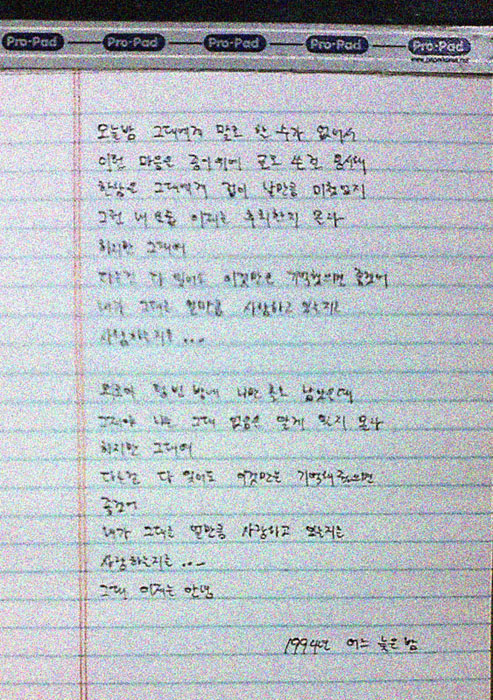 Pro-Pad Pro-Pad Pro-Pad Pro-Pad Pro-Pad
오늘밤 그대에게 말로 할 수가 없어서
이런 마음을 종이위에 글로 쓴걸 용서해
한참을 그대에게 겁이 날만큼 미쳤었지
그런 내 모습 이제는 후회할지 몰라
하지만 그대여
다른건 다 잊어도 이것만은 기억했으면 좋겠어
내가 그대를 얼마큼 사랑하고 있는지를
사랑하는지를...
외로이 텅 빈 방에 나만 홀로 남았을때
그제야 나는 그대 없음을 알게 될지 몰라
하지만 그대여
다른건 다 잊어도 이것만은 기억해줬으면
좋겠어
내가 그대를 얼만큼 사랑하고 있는지를
사랑하는지를...
그대 이제는 안녕
1994년 어느 늦은 밤